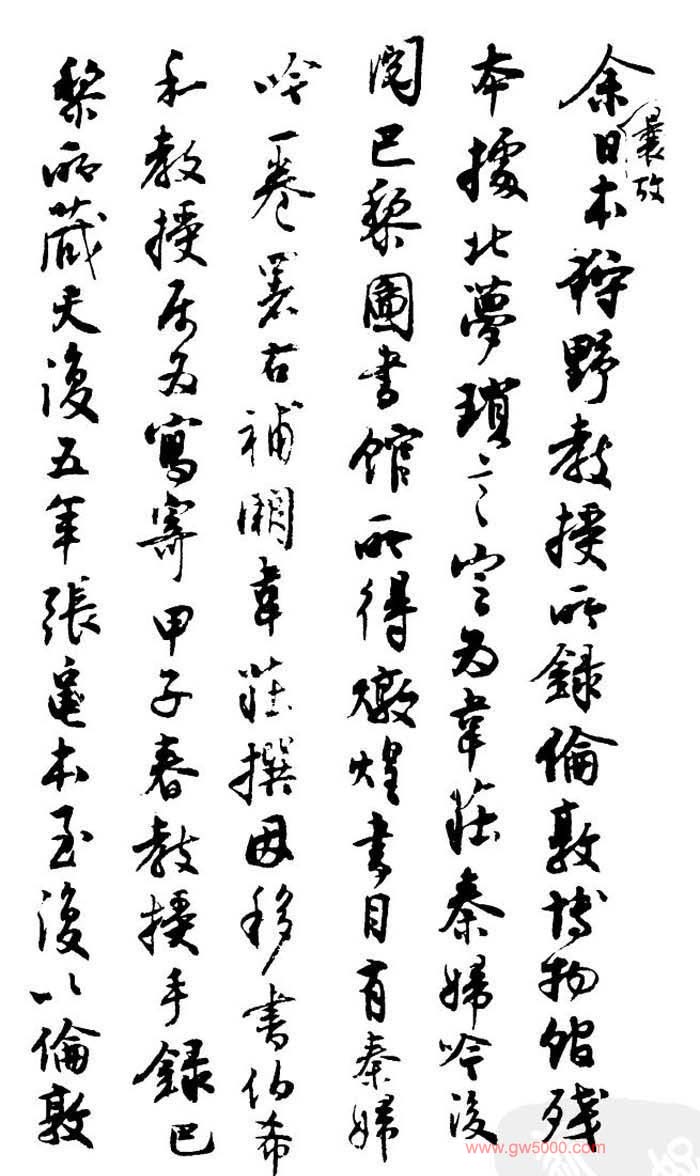 余曩攷日本狩野教授所録倫敦博物館残
本據北夢瑣言定為韋莊秦婦吟後
閲巴黎圖書館所得燉煌書目有秦婦
吟一卷署右補闕韋莊撰因移書伯希
和教授屬為寫寄甲子春教授手録巴
黎所藏天復五年張龜本至復以倫敦
www.gw5000.com